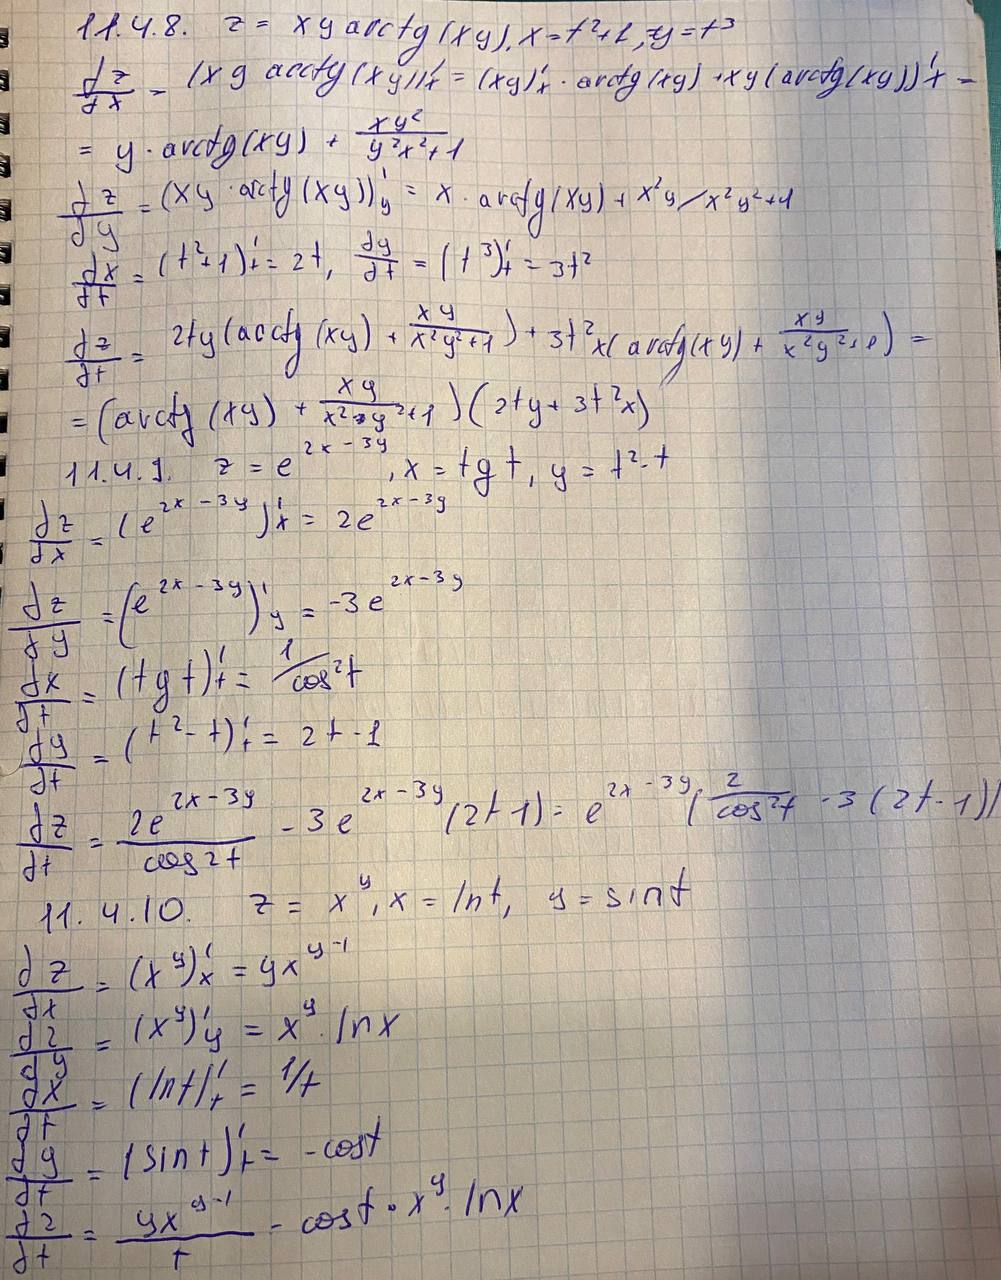 11.4.8. z = xy arctg(xy), x = t²+1, y = t³
dz/dx = (xy arctg(xy))'x = (xy)'x · arctg(xy) + xy(arctg(xy))'x =
= y · arctg(xy) + xy²/(y²x²+1)
dz/dy = (xy · arctg(xy))'y = x · arctg(xy) + x²y/x²y²+1
dx/dt = (t²+1)'t = 2t, dy/dt = (t³)'t = 3t²
dz/dt = 2ty(arctg(xy) + xy/(x²y²+1)) + 3t²x(arctg(xy) + xy/(x²y²+1)) =
= (arctg(xy) + xy/(x²y²+1))(2ty + 3t²x)
11.4.9. z = e^(2x-3y), x = tg t, y = t²-t
dz/dx = (e^(2x-3y))'x = 2e^(2x-3y)
dz/dy = (e^(2x-3y))'y = -3e^(2x-3y)
dx/dt = (tg t)'t = 1/cos²t
dy/dt = (t²-t)'t = 2t-1
dz/dt = 2e^(2x-3y)/cos²t - 3e^(2x-3y)(2t-1) = e^(2x-3y)(2/cos²t - 3(2t-1))
11.4.10. z = x^y, x = lnt, y = sint
dz/dx = (x^y)'x = yx^(y-1)
dz/dy = (x^y)'y = x^y · lnx
dx/dt = (lnt)'t = 1/t
dy/dt = (sint)'t = -cost
dz/dt = yx^(y-1)/t - cost · x^y · lnx